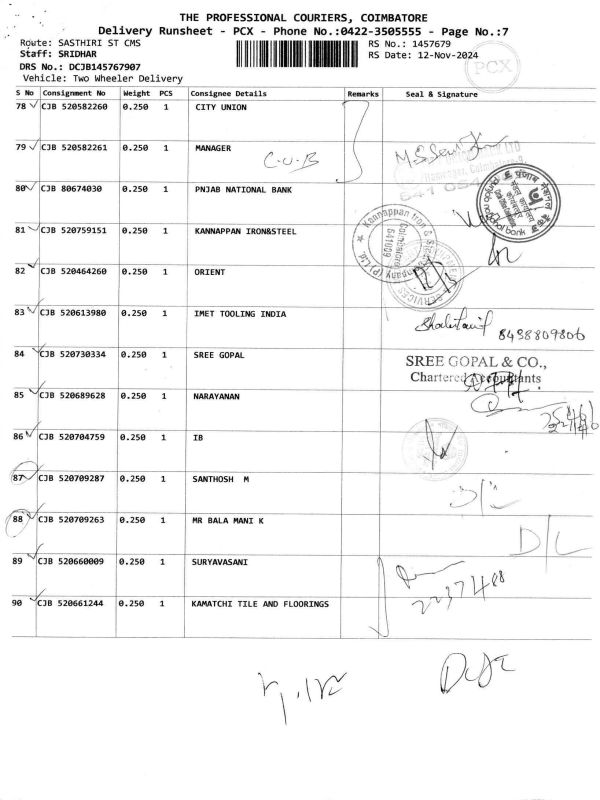 THE PROFESSIONAL COURIERS, COIMBATORE
Delivery Runsheet - PCX - Phone No.:0422-3505555 - Page No.:7
Route: SASTHIRI ST CMS RS No.: 1457679
Staff: SRIDHAR RS Date: 12-Nov-2024
DRS No.: DCJB145767907
PCX
Vehicle: Two Wheeler Delivery
S No Consignment No Weight PCS Consignee Details Remarks Seal & Signature
78 CJB 520582260 0.250 1 CITY UNION
79 CJB 520582261 0.250 1 MANAGER
C.U.B
80 CJB 80674030 0.250 1 PNJAB NATIONAL BANK
81 CJB 520759151 0.250 1 KANNAPPAN IRON&STEEL
Kannappan Iron & Steel Company (P) Ltd.
Coimbatore
641009
82 CJB 520464260 0.250 1 ORIENT
83 CJB 520613980 0.250 1 IMET TOOLING INDIA
8438809806
84 CJB 520730334 0.250 1 SREE GOPAL SREE GOPAL & CO.,
Chartered Accountants
85 CJB 520689628 0.250 1 NARAYANAN
86 CJB 520704759 0.250 1 IB
87 CJB 520709287 0.250 1 SANTHOSH M
88 CJB 520709263 0.250 1 MR BALA MANI K
D/L
89 CJB 520660009 0.250 1 SURYAVASANI
90 CJB 520661244 0.250 1 KAMATCHI TILE AND FLOORINGS